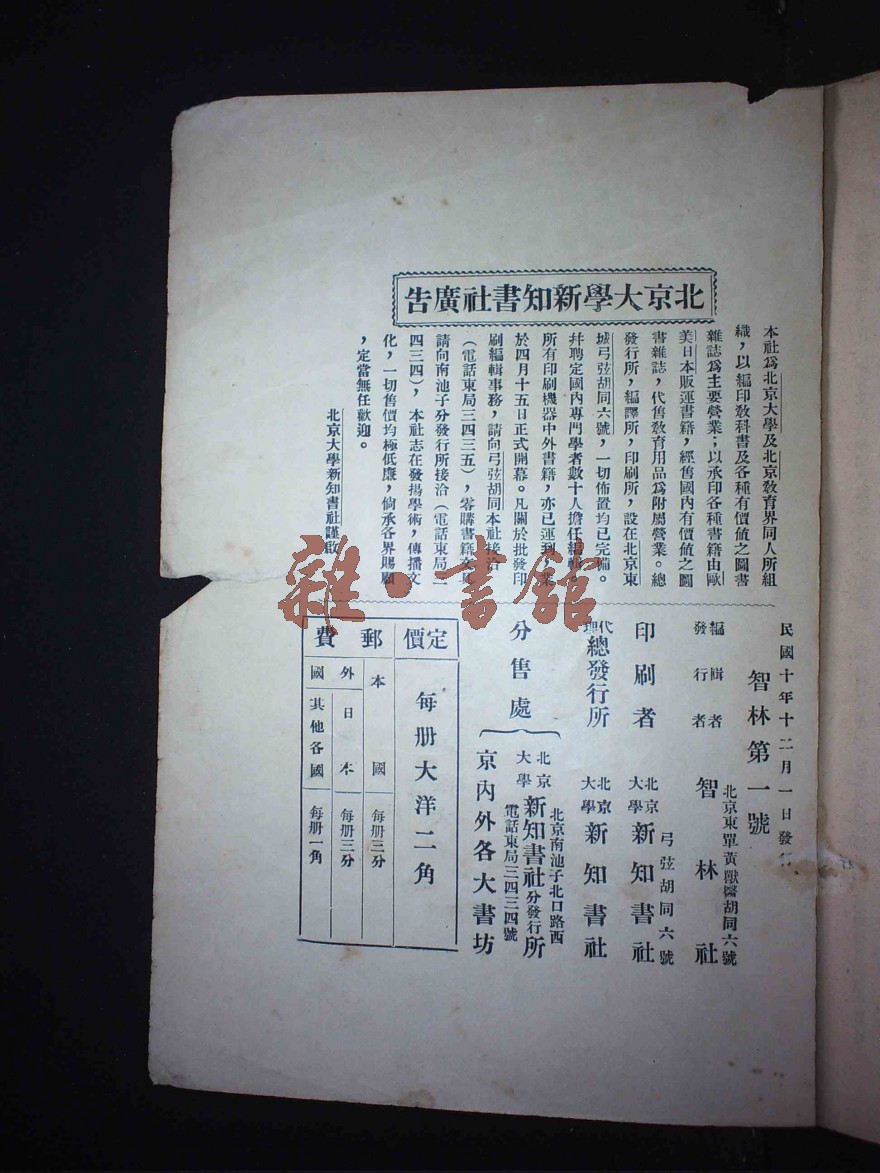 北京大學新知書社廣告
本社爲北京大學及北京敎育界同人所組
織，以編印敎科書及各種有價値之圖書
雜誌爲主要營業；以承印各種書籍由歐
美日本販運書籍，經售國內有價値之圖
書雜誌，代售敎育用品爲附屬營業。總
發行所，編譯所，印刷所，設在北京東
城弓弦胡同六號，一切佈置均已完備。
幷聘定國內專門學者數十人擔任編輯。
所有印刷機器中外書籍，亦已運到，
於四月十五日正式開幕。凡關於批發印
刷編輯事務，請向弓弦胡同本社接洽
（電話東局三四三五），零購書籍文具
請向南池子分發行所接洽（電話東局三
四三四），本社志在發揚學術，傳播文
化，一切售價均極低廉，倘承各界賜顧
，定當無任歡迎。
北京大學新知書社謹啟
民國十年十二月一日發行
智林第一號
編輯者
發行者
北京東單黃獸醫胡同六號
智林社
印刷者
弓弦胡同六號
北京大學新知書社
代理總發行所
北京大學新知書社
分售處
北京南池子北口路西
北京大學新知書社分發行所
電話東局三四三四號
京內外各大書坊
定價
每册大洋二角
郵費
本國
每册三分
外國
日本
每册三分
其他各國
每册一角
雜·書館